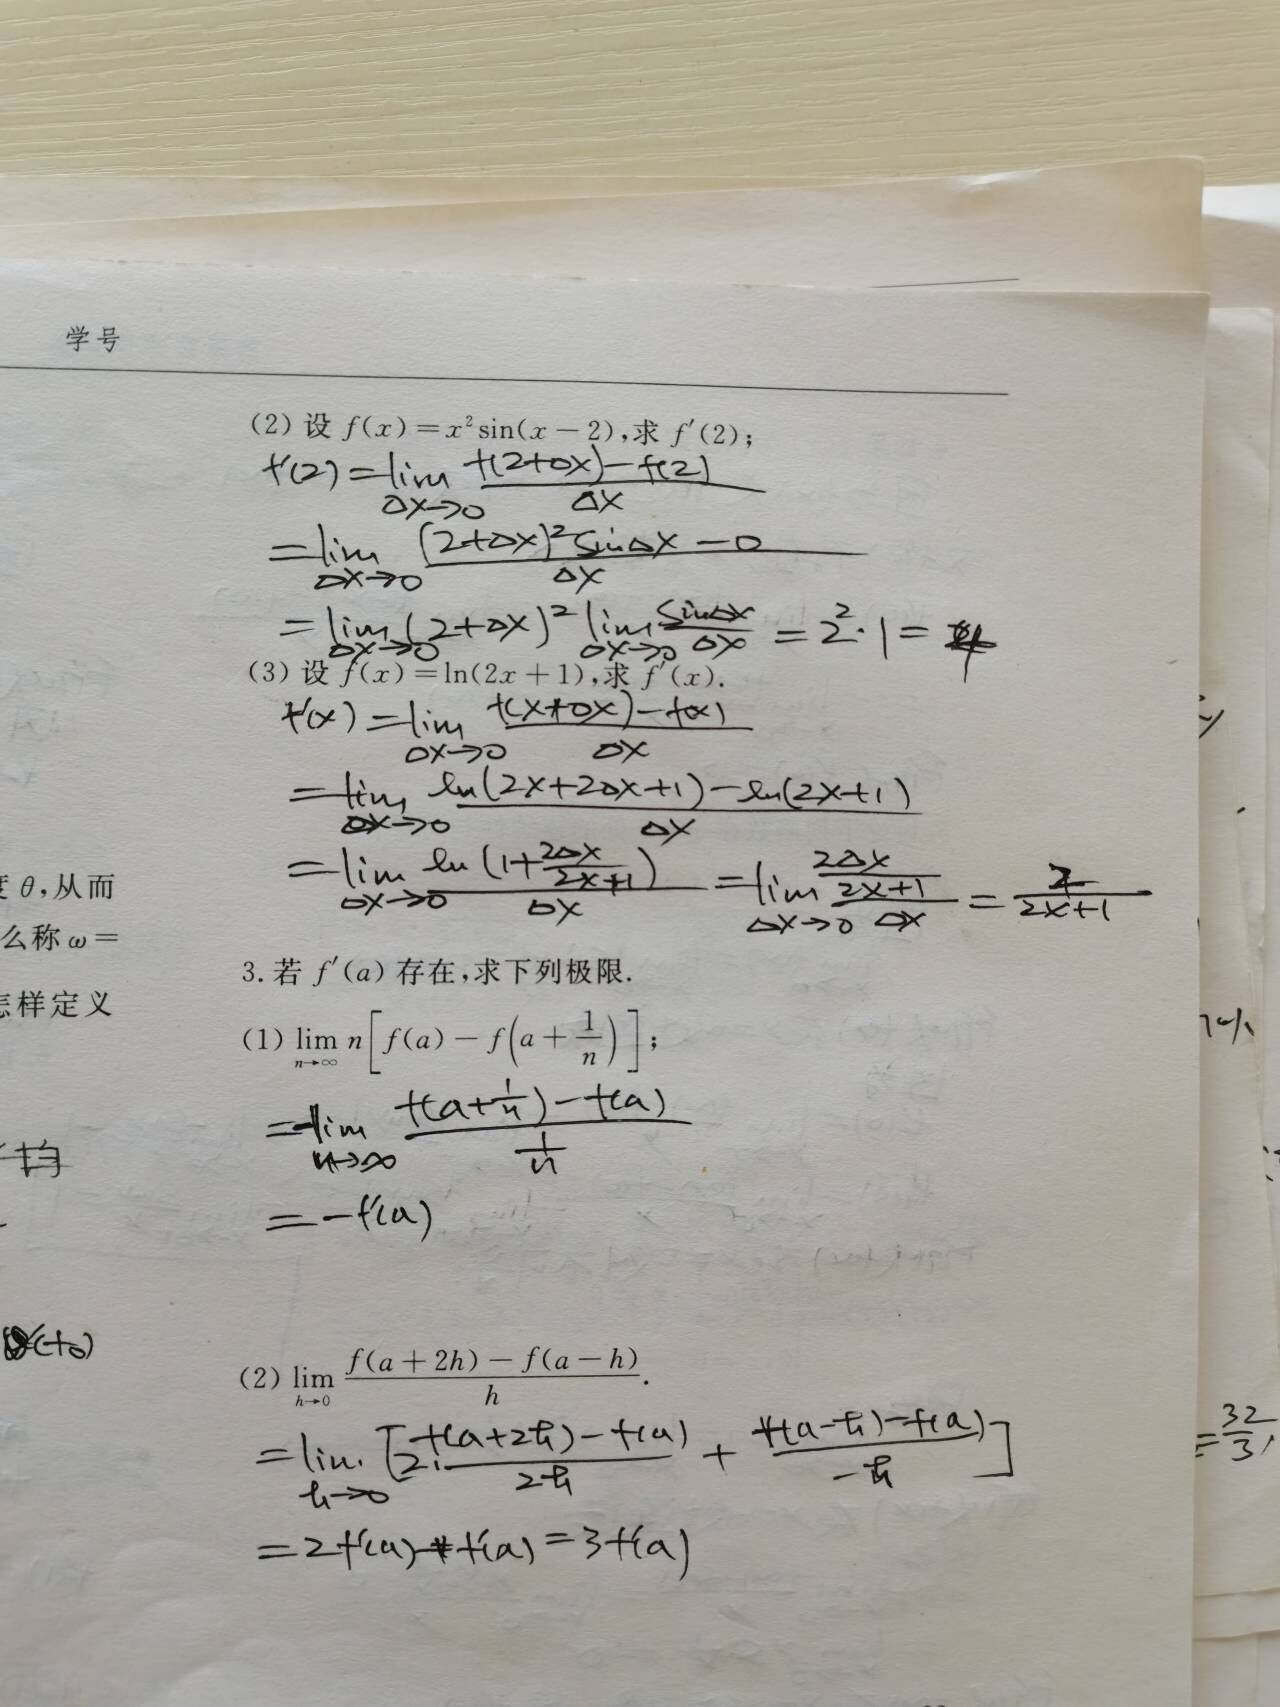 学号
(2) 设 f(x)=x²sin(x-2),求 f′(2);
f′(2)=lim Δx→0 (f(2+Δx)-f(2))/Δx
=lim Δx→0 ((2+Δx)²sinΔx-0)/Δx
=lim Δx→0 (2+Δx)² lim Δx→0 sinΔx/Δx = 2²·1=4
(3) 设 f(x)=ln(2x+1),求 f′(x).
f′(x)=lim Δx→0 (f(x+Δx)-f(x))/Δx
=lim Δx→0 (ln(2x+2Δx+1)-ln(2x+1))/Δx
=lim Δx→0 ln(1+2Δx/(2x+1))/Δx =lim Δx→0 (2Δx/(2x+1))/Δx = 2/(2x+1)
θ,从而
么称 ω=
怎样定义
3. 若 f′(a) 存在,求下列极限.
(1) lim n→∞ n[f(a)-f(a+1/n)];
=-lim n→∞ (f(a+1/n)-f(a))/(1/n)
=-f′(a)
(t₀)
(2) lim h→0 (f(a+2h)-f(a-h))/h.
=lim h→0 [2·(f(a+2h)-f(a))/2h + (f(a-h)-f(a))/-h]
=2f′(a)+f′(a)=3f′(a)
=32/3,